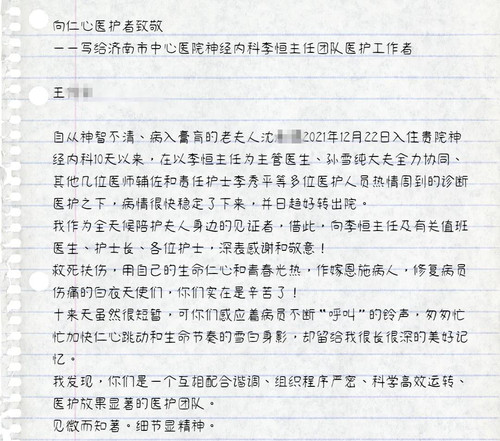 向仁心医护者致敬
——写给济南市中心医院神经内科李恒主任团队医护工作者
王
自从神智不清、病入膏肓的老夫人沈2021年12月22日入住贵院神
经内科10天以来，在以李恒主任为主管医生、孙雪纯大夫全力协同、
其他几位医师辅佐和责任护士李秀平等多位医护人员热情周到的诊断
医护之下，病情很快稳定了下来，并日趋好转出院。
我作为全天候陪护夫人身边的见证者，借此，向李恒主任及有关值班
医生、护士长、各位护士，深表感谢和敬意！
救死扶伤，用自己的生命仁心和青春光热，作嫁恩施病人，修复病员
伤痛的白衣天使们，你们实在是辛苦了！
十来天虽然很短暂，可你们感应着病员不断“呼叫”的铃声，匆匆忙
忙加快仁心跳动和生命节奏的雪白身影，却留给我很长很深的美好记
忆。
我发现，你们是一个互相配合谐调、组织程序严密、科学高效运转、
医护效果显著的医护团队。
见微而知著。细节显精神。